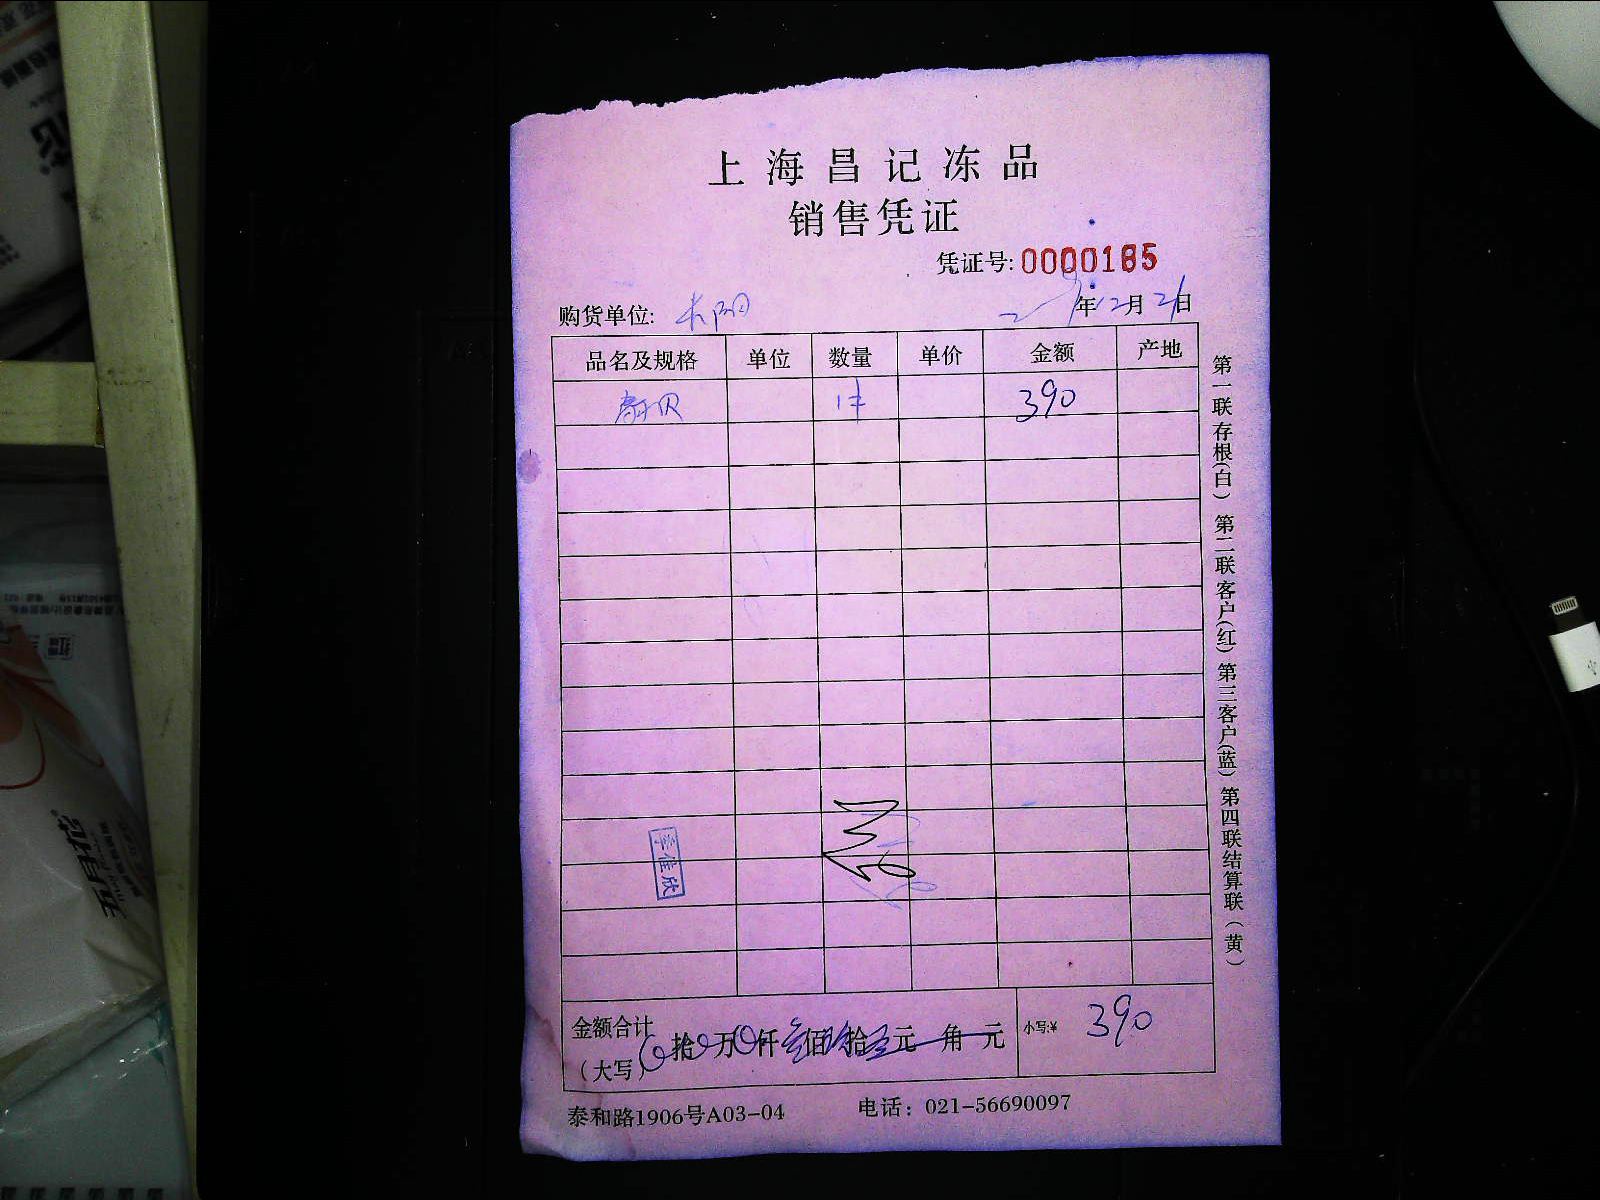 上海昌记冻品
销售凭证
凭证号: 0000165
购货单位: 长阳 年12月21日
品名及规格 单位 数量 单价 金额 产地
贝 1件 390
李佳欣
金额合计
(大写) 拾 万 仟 叁佰 玖拾 元 角 元 小写:¥ 390
泰和路1906号A03-04 电话: 021-56690097
第一联存根(白) 第二联客户(红) 第三客户(蓝) 第四联结算联(黄)
五月花